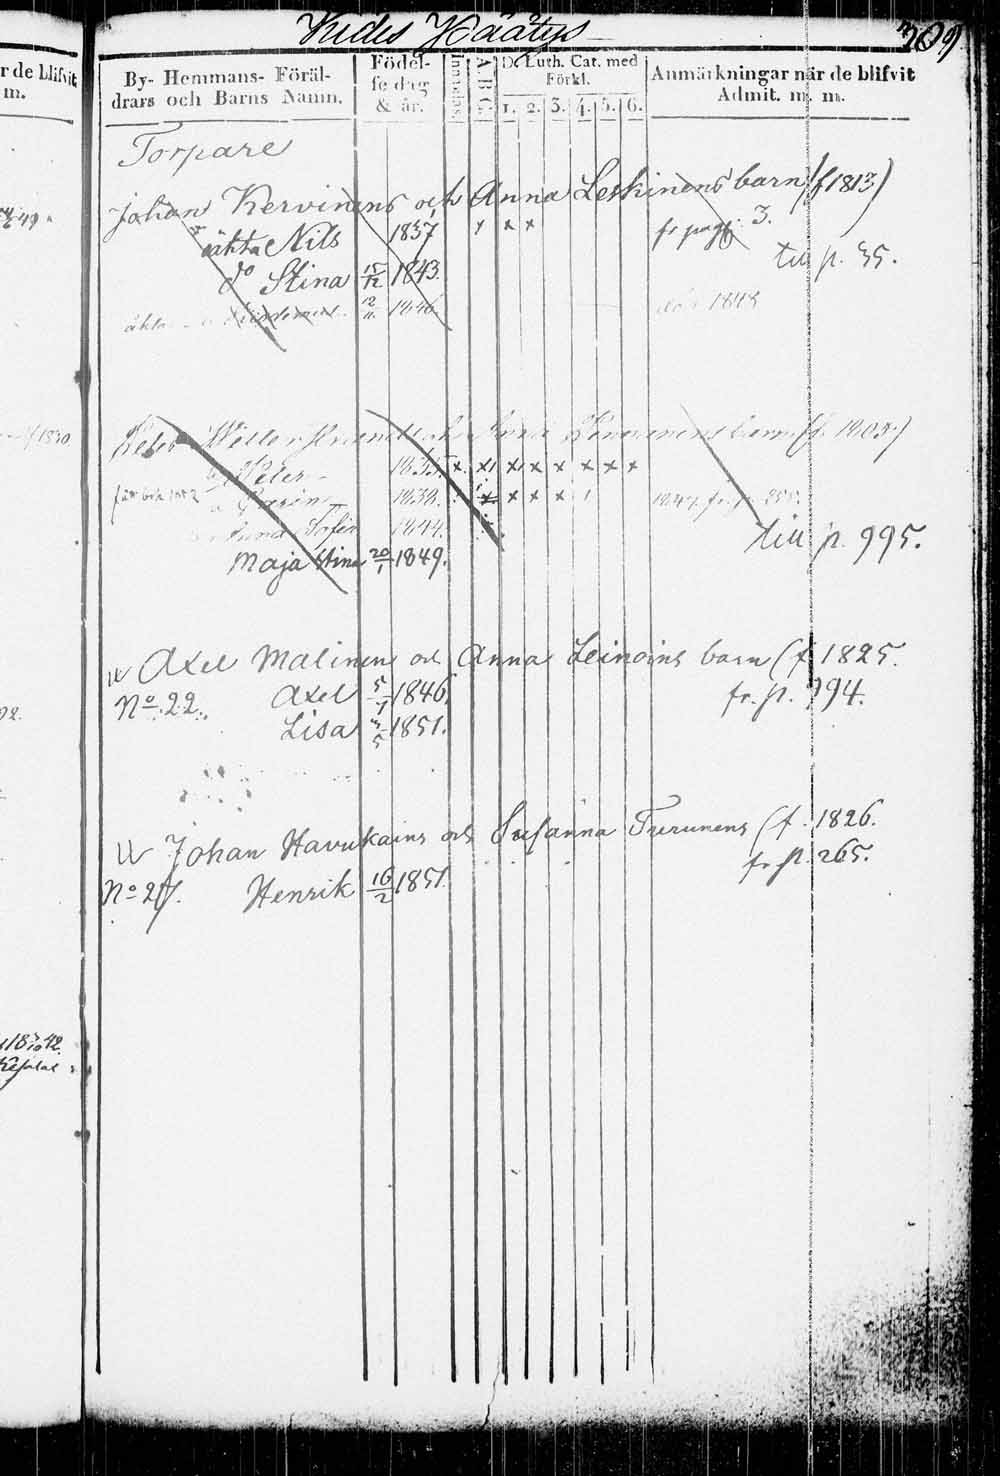 Kides Häätys 309
r de blifvit
m.
By- Hemmans- Föräl-
drars och Barns Namn.
Födel-
se dag
& år.
Innanläs.
A B C.
D. Luth. Cat. med
Förkl.
1. 2. 3. 4. 5. 6.
Anmärkningar när de blifvit
Admit. m. m.
Torpare
Johan Kervinens och Anna Leskinens barn (f 1813)
äkta Nils 1837 x x x fr pag. 3.
till p. 35.
do Stina 15/12 1843.
äkta 12/11 1846. 1848
f 1830
Anna barn
Peter 1835. x x x x x x x x
1838. x x x x
Anna Sofia 1844.
till p. 995.
Maja Stina 20/1 1849.
Axel Malinen och Anna Leinoins barn (f 1825.
No 22. Axel 5/1 1846. fr. p. 994.
Lisa 3/5 1851.
Johan Havukains och Susanna Turunens (f. 1826.
fr p. 265.
No 27. Henrik 16/2 1851